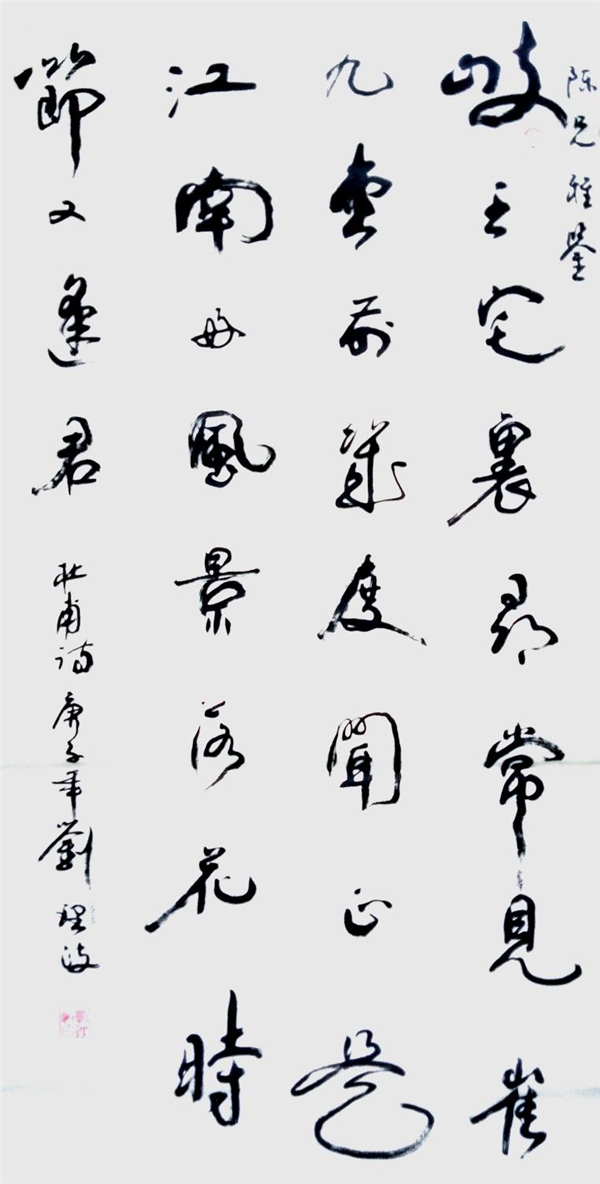 陈兄雅鉴
岐王宅裏尋常見崔
九堂前幾度聞正是
江南好風景落花時
節又逢君
杜甫诗庚子年劉理波